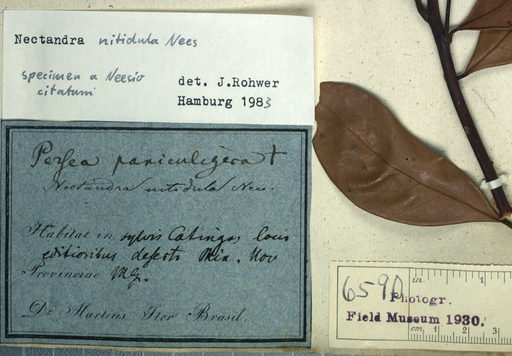 Nectandra nitidula Nees
specimen a Neesio
citatum
det. J.Rohwer
Hamburg 1983
Persea paniculigera †
Nectandra nitidula Nees.
Habitat in sylvis Catingas locis
editioribus deserti Min. Nov.
Provinciae MG.
Dr Martius Iter Brasil.
6590
Photogr.
Field Museum 1930.
in. 1
cm. 1 2 3